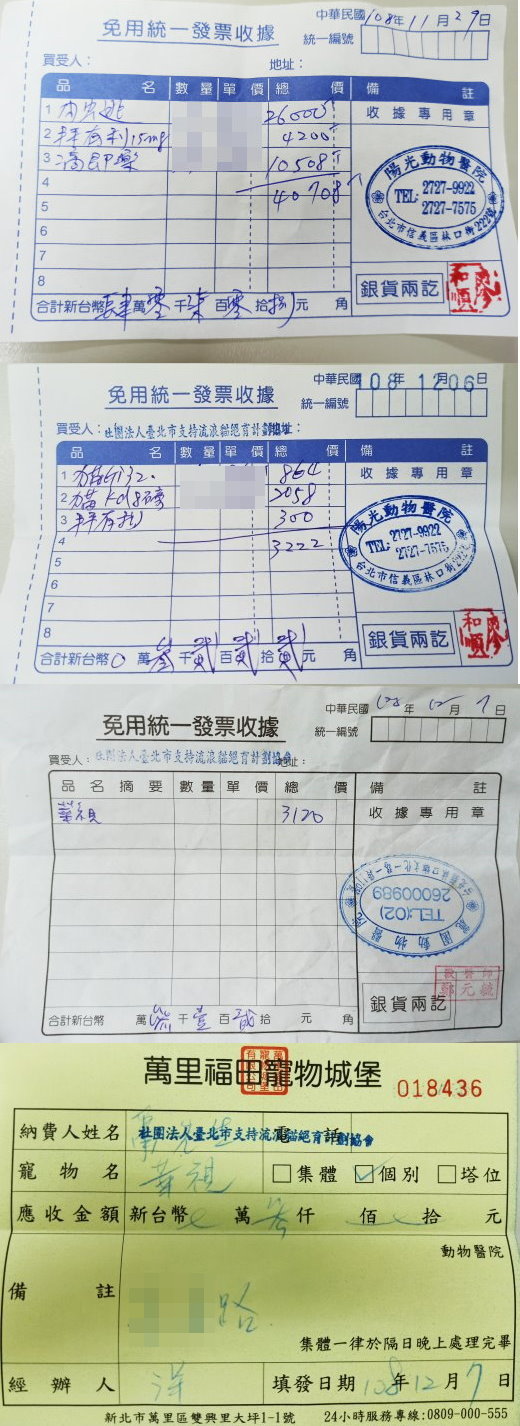 免用統一發票收據
中華民國108年11月29日
統一編號
買受人: 地址:
品名 數量 單價 總價 備註
收據專用章
1 26000
2 15mg 4200
3 10508
4
40708
5
6
7
8
陽光動物醫院
TEL: 2727-9922
2727-7575
台北市信義區林口街222號
銀貨兩訖
合計新台幣肆萬零千柒百零拾捌元 角
免用統一發票收據
中華民國108年12 06日
統一編號
買受人:社團法人臺北市支持流浪貓絕育計劃 地址:
品名 數量 單價 總價 備註
收據專用章
1 864
2 2058
3 300
4
3222
5
6
7
8
陽光動物醫院
TEL: 2727-9922
2727-7575
台北市信義區林口街222號
銀貨兩訖
合計新台幣0萬叁千貳百貳拾貳元 角
免用統一發票收據
中華民國108年12月7日
統一編號
買受人:社團法人臺北市支持流浪貓絕育計劃協會
地址:
品名摘要 數量 單價 總價 備註
收據專用章
華祺 3120
動物醫院
TEL:(02)
26000989
獸醫師
鄭元毓
銀貨兩訖
合計新台幣 萬叁千壹百貳拾 元 角
萬里福田寵物城堡
018436
納費人姓名 社團法人臺北市支持流浪貓絕育計劃協會 電話
寵物名 華祺 □集體 ☑個別 □塔位
應收金額 新台幣 萬 叁仟 佰 拾 元
動物醫院
備註
路
集體一律於隔日晚上處理完畢
經辦人 洋 填發日期 108年12月7日
新北市萬里區雙興里大坪1-1號 24小時服務專線:0809-000-555